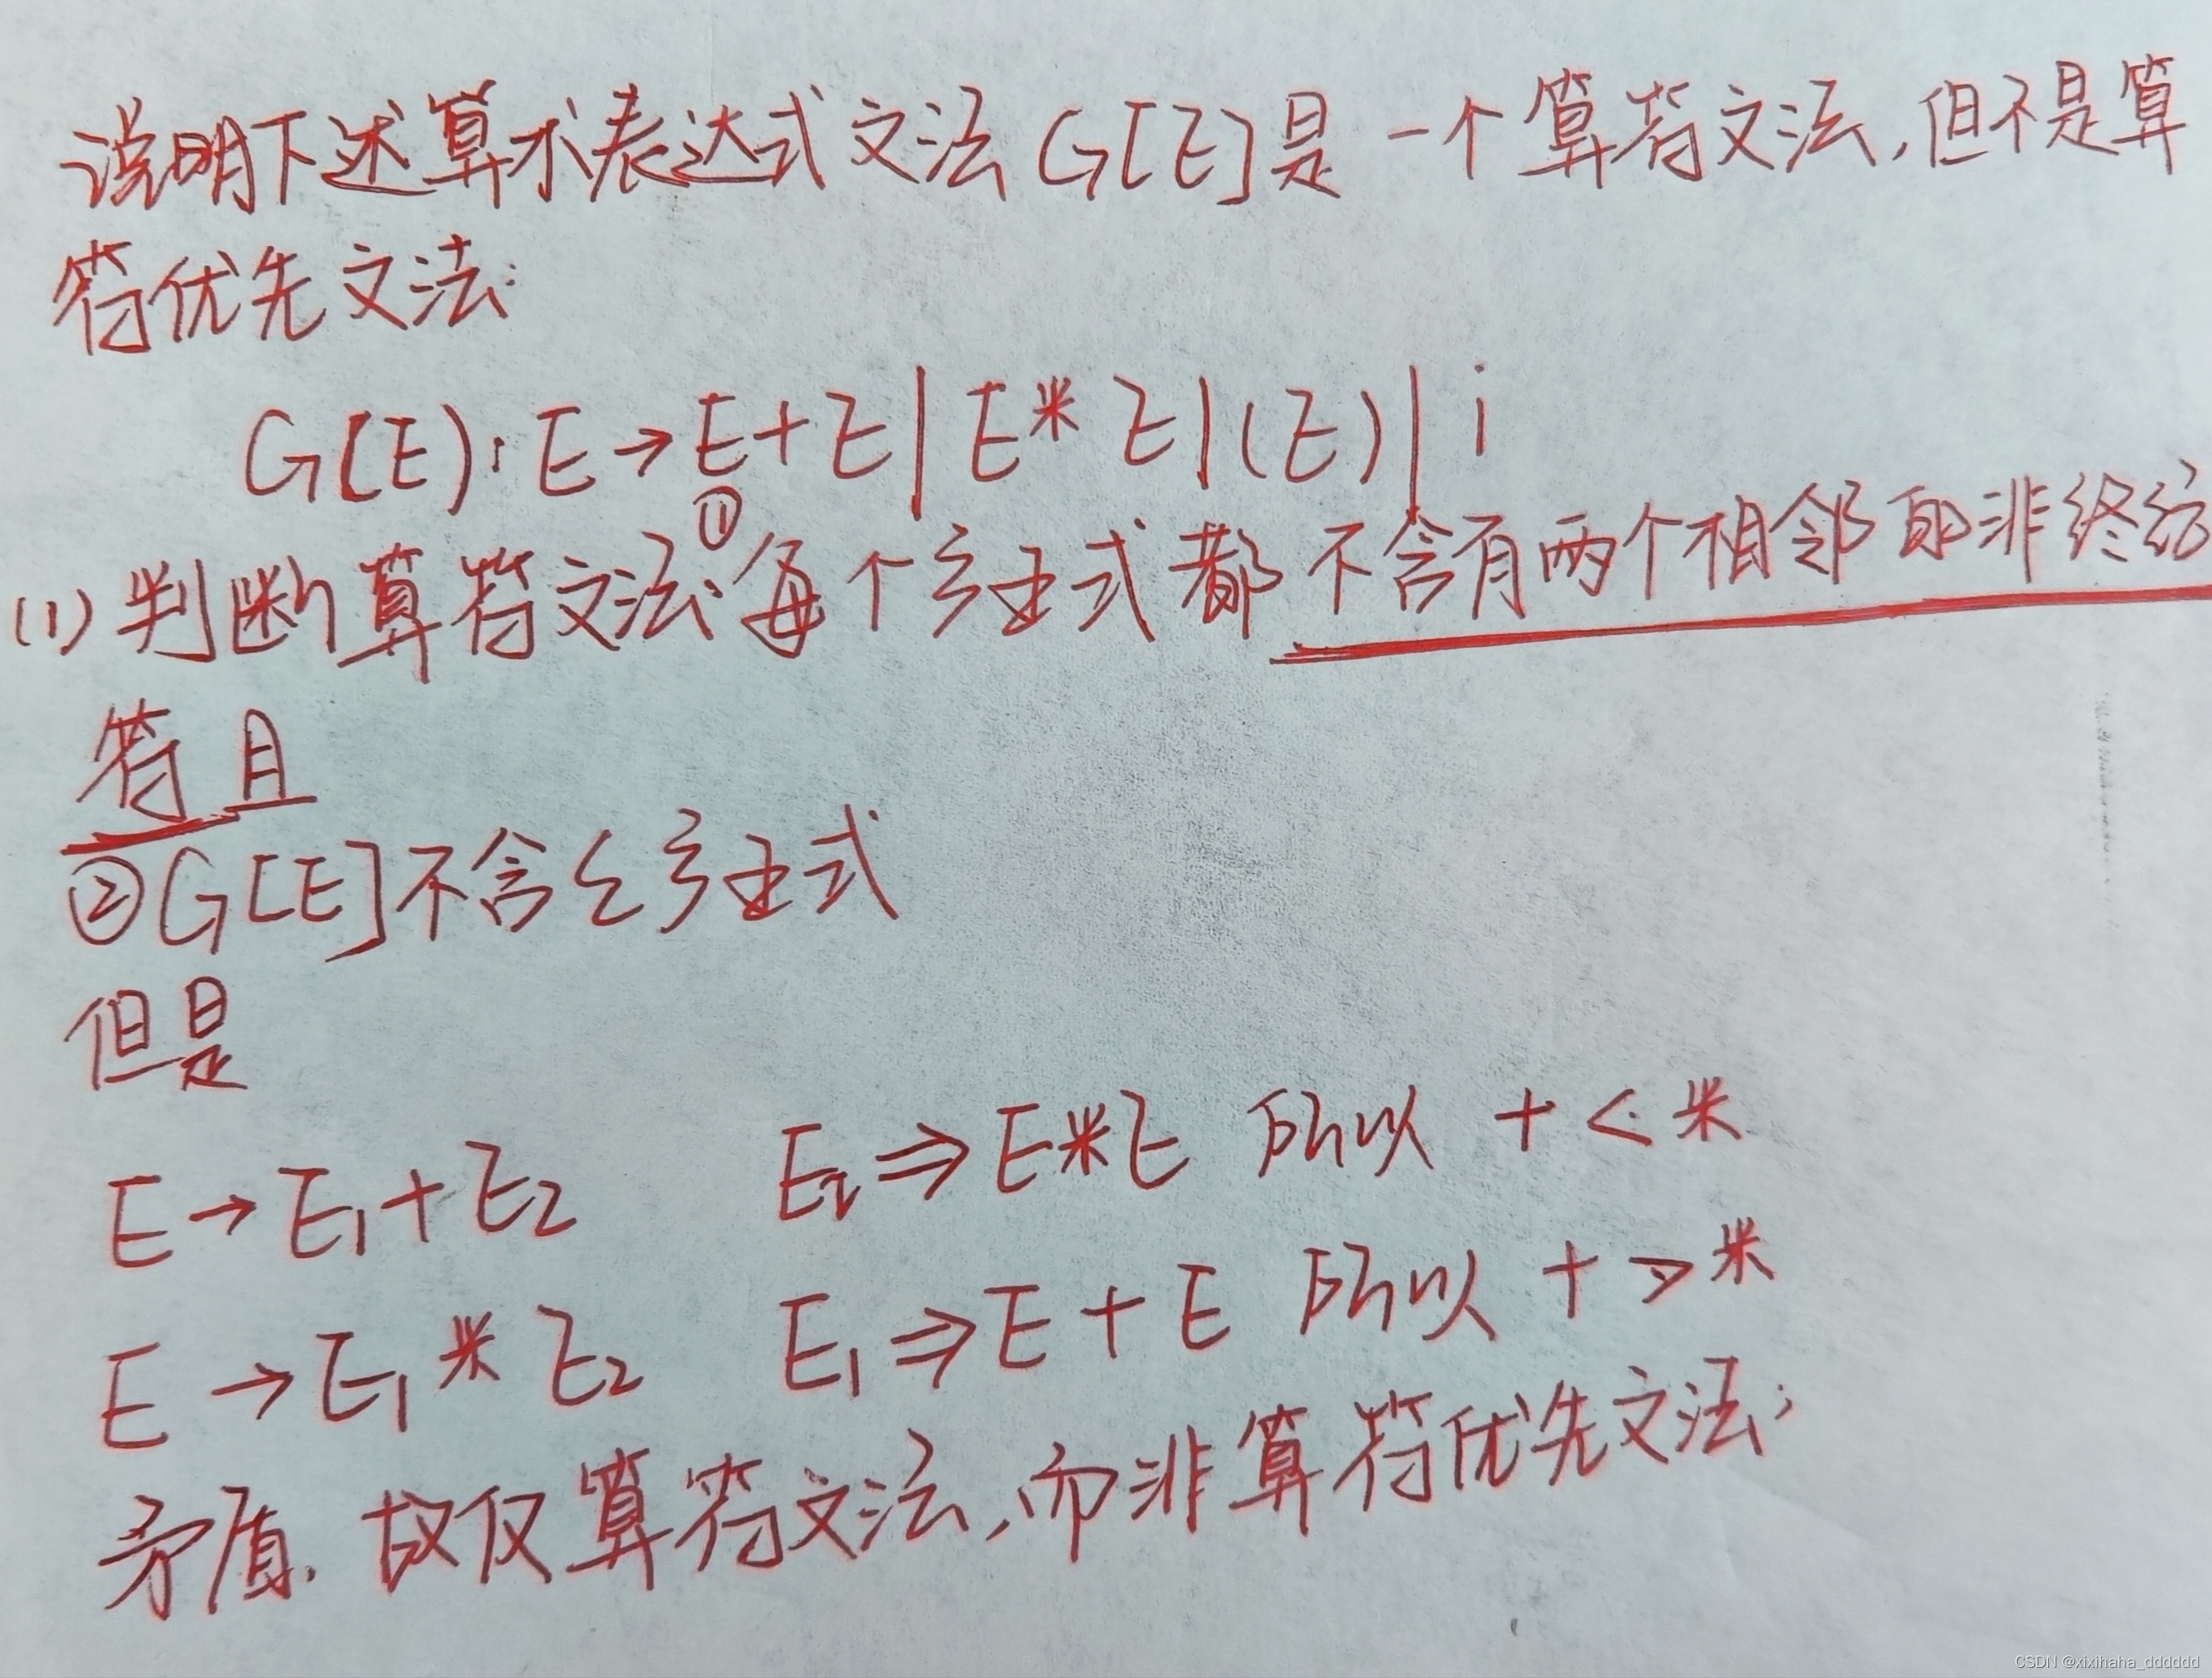 说明下述算术表达式文法G[E]是一个算符文法,但不是算
符优先文法:
G[E):E→E+E|E*E|(E)|i
(1)判断算符文法:①每个产生式都不含有两个相邻的非终结
符且
②G[E]不含ε产生式
但是
E→E₁+E₂ E₂⇒E*E 所以 +⋖*
E→E₁*E₂ E₁⇒E+E 所以 +⋗*
矛盾.故仅算符文法,而非算符优先文法;
CSDN @xixihaha_dddddd